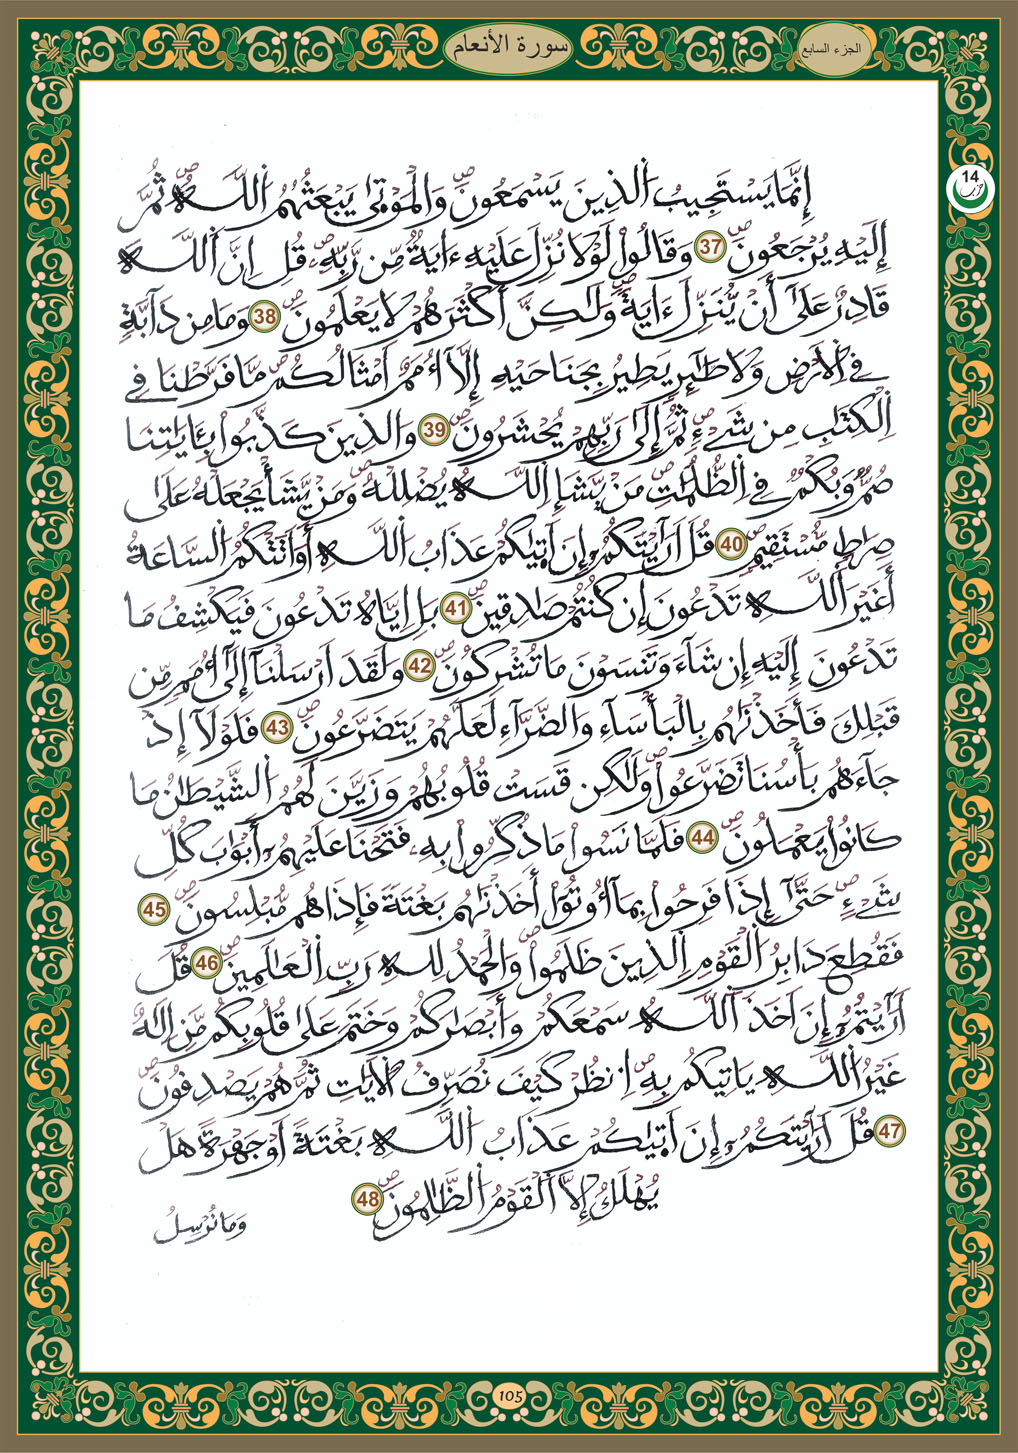 سورة الأنعام
الجزء السابع
14
حزب
إِنَّمَا يَسْتَجِيبُ الذِينَ يَسْمَعُونَ وَالْمَوْتَىٰ يَبْعَثُهُمُ اللَّهُ ثُمَّ
إِلَيْهِ يُرْجَعُونَ 37 وَقَالُوا لَوْلَا نُزِّلَ عَلَيْهِ ءَايَةٌ مِّن رَّبِّهِ قُلِ اِنَّ اللَّهَ
قَادِرٌ عَلَىٰ أَنْ يُّنَزِّلَ ءَايَةً وَلَٰكِنَّ أَكْثَرَهُمْ لَا يَعْلَمُونَ 38 وَمَا مِن دَآبَّةٍ
فِي الْأَرْضِ وَلَا طَٰٓئِرٍ يَطِيرُ بِجَنَاحَيْهِ إِلَّآ أُمَمٌ اَمْثَالُكُم مَّا فَرَّطْنَا فِي
اِلْكِتَٰبِ مِن شَيْءٍ ثُمَّ إِلَىٰ رَبِّهِمْ يُحْشَرُونَ 39 وَالذِينَ كَذَّبُوا بِـَٔايَٰتِنَا
صُمٌّ وَبُكْمٌ فِي الظُّلُمَٰتِ مَنْ يَّشَإِ اللَّهُ يُضْلِلْهُ وَمَنْ يَّشَأْ يَجْعَلْهُ عَلَىٰ
صِرَٰطٍ مُّسْتَقِيمٍ 40 قُلَ اَرَٰٓيْتَكُمُ إِنَ اَتَىٰكُمْ عَذَابُ اللَّهِ أَوَ اَتَتْكُمُ السَّاعَةُ
أَغَيْرَ اللَّهِ تَدْعُونَ إِن كُنتُمْ صَٰدِقِينَ 41 بَلِ اِيَّاهُ تَدْعُونَ فَيَكْشِفُ مَا
تَدْعُونَ إِلَيْهِ إِن شَآءَ وَتَنسَوْنَ مَا تُشْرِكُونَ 42 وَلَقَدَ اَرْسَلْنَآ إِلَىٰٓ أُمَمٍ مِّن
قَبْلِكَ فَأَخَذْنَٰهُم بِالْبَأْسَآءِ وَالضَّرَّآءِ لَعَلَّهُمْ يَتَضَرَّعُونَ 43 فَلَوْلَآ إِذْ
جَآءَهُم بَأْسُنَا تَضَرَّعُوا وَلَٰكِن قَسَتْ قُلُوبُهُمْ وَزَيَّنَ لَهُمُ الشَّيْطَٰنُ مَا
كَانُوا يَعْمَلُونَ 44 فَلَمَّا نَسُوا مَا ذُكِّرُوا بِهِ فَتَحْنَا عَلَيْهِمُ أَبْوَٰبَ كُلِّ
شَيْءٍ حَتَّىٰٓ إِذَا فَرِحُوا بِمَآ أُوتُوٓا أَخَذْنَٰهُم بَغْتَةً فَإِذَا هُم مُّبْلِسُونَ 45
فَقُطِعَ دَابِرُ الْقَوْمِ الذِينَ ظَلَمُوا وَالْحَمْدُ لِلهِ رَبِّ الْعَٰلَمِينَ 46 قُلَ
اَرَٰٓيْتُمُ إِنَ اَخَذَ اللَّهُ سَمْعَكُمْ وَأَبْصَٰرَكُمْ وَخَتَمَ عَلَىٰ قُلُوبِكُم مَّنِ اِلَٰهٌ
غَيْرُ اللَّهِ يَاتِيكُم بِهِ اِنظُرْ كَيْفَ نُصَرِّفُ الْأَيَٰتِ ثُمَّ هُمْ يَصْدِفُونَ
47 قُلَ اَرَٰٓيْتَكُمُ إِنَ اَتَىٰكُمْ عَذَابُ اللَّهِ بَغْتَةً اَوْ جَهْرَةً هَلْ
يُهْلَكُ إِلَّا الْقَوْمُ الظَّٰلِمُونَ 48
وَمَا نُرْسِلُ
105